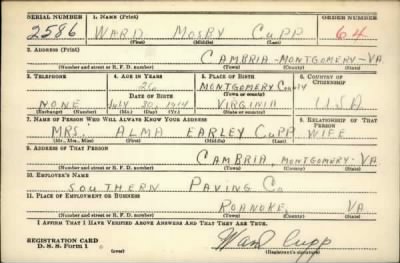 SERIAL NUMBER 1. NAME (Print) ORDER NUMBER
2586 WARD MOSBY CUPP 64
(First) (Middle) (Last)
2. ADDRESS (Print)
CAMBRIA - MONTGOMERY - VA
(Number and street or R. F. D. number) (Town) (County) (State)
3. TELEPHONE 4. AGE IN YEARS 5. PLACE OF BIRTH 6. COUNTRY OF CITIZENSHIP
26 MONTGOMERY COUNTY
(Town or county)
NONE July 30, 1914 VIRGINIA USA
(Exchange) (Number) (Mo.) (Day) (Yr.) (State or country)
7. NAME OF PERSON WHO WILL ALWAYS KNOW YOUR ADDRESS 8. RELATIONSHIP OF THAT PERSON
MRS. ALMA EARLEY CUPP WIFE
(Mr., Mrs., Miss) (First) (Middle) (Last)
9. ADDRESS OF THAT PERSON
CAMBRIA, MONTGOMERY - VA
(Number and street or R. F. D. number) (Town) (County) (State)
10. EMPLOYER'S NAME
SOUTHERN PAVING CO
11. PLACE OF EMPLOYMENT OR BUSINESS
ROANOKE, VA
(Number and street or R. F. D. number) (Town) (County) (State)
I AFFIRM THAT I HAVE VERIFIED ABOVE ANSWERS AND THAT THEY ARE TRUE.
REGISTRATION CARD
D. S. S. Form 1 (over) Ward Cupp
(Registrant's signature)